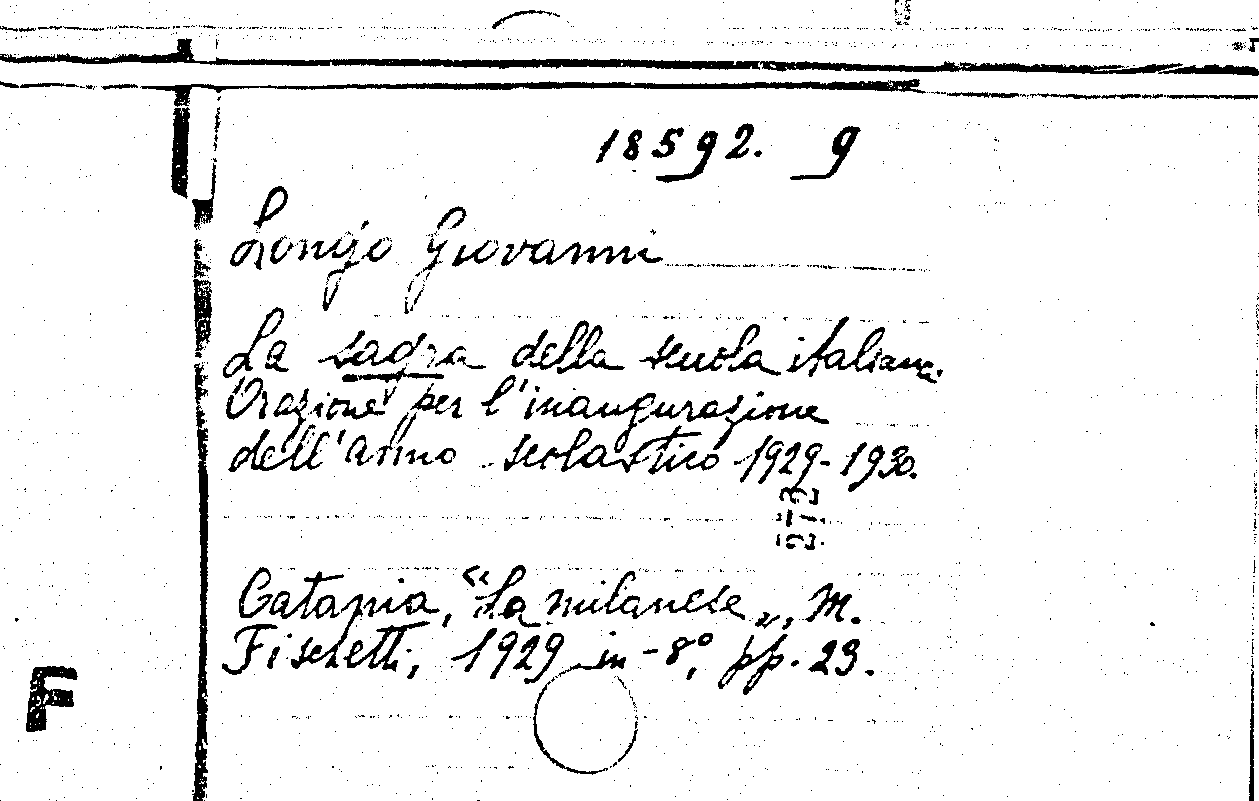 18592. 9
Longo Giovanni
La sagra della scuola italiana.
Orazione per l'inaugurazione
dell'anno scolastico 1929-1930.
273
Catania, "La milanese", M.
Fischetti, 1929 in-8°, pp. 23.
F